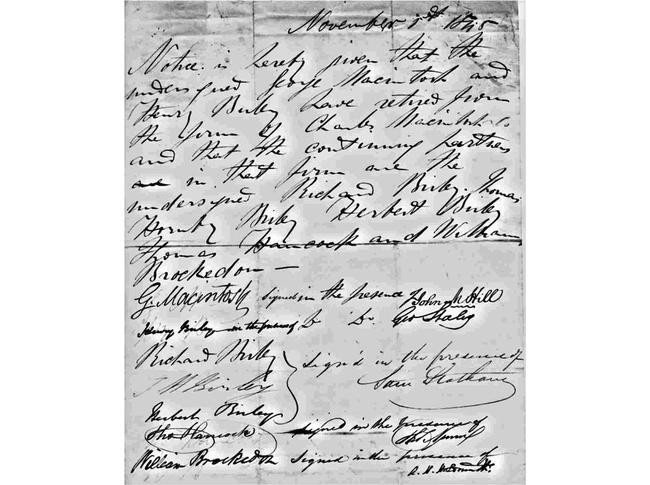 November 1845
Notice is hereby given that the
undersigned George Macintosh and
Henry Birley have retired from
the firm of Charles Macintosh & Co
and that the continuing partners
in that firm are the
undersigned Richard Birley. Thomas
Hornby Birley Herbert Birley
Thomas Hancock and William
Brockedon —
G. Macintosh signed in the presence of John M Hill
Henry Birley in the presence of Do Do Geo
Richard Birley
T H Birley
sign'd in the presence of
Sam
Herbert Birley
Thos Hancock signed in the presence of
William Brockedon signed in the presence of